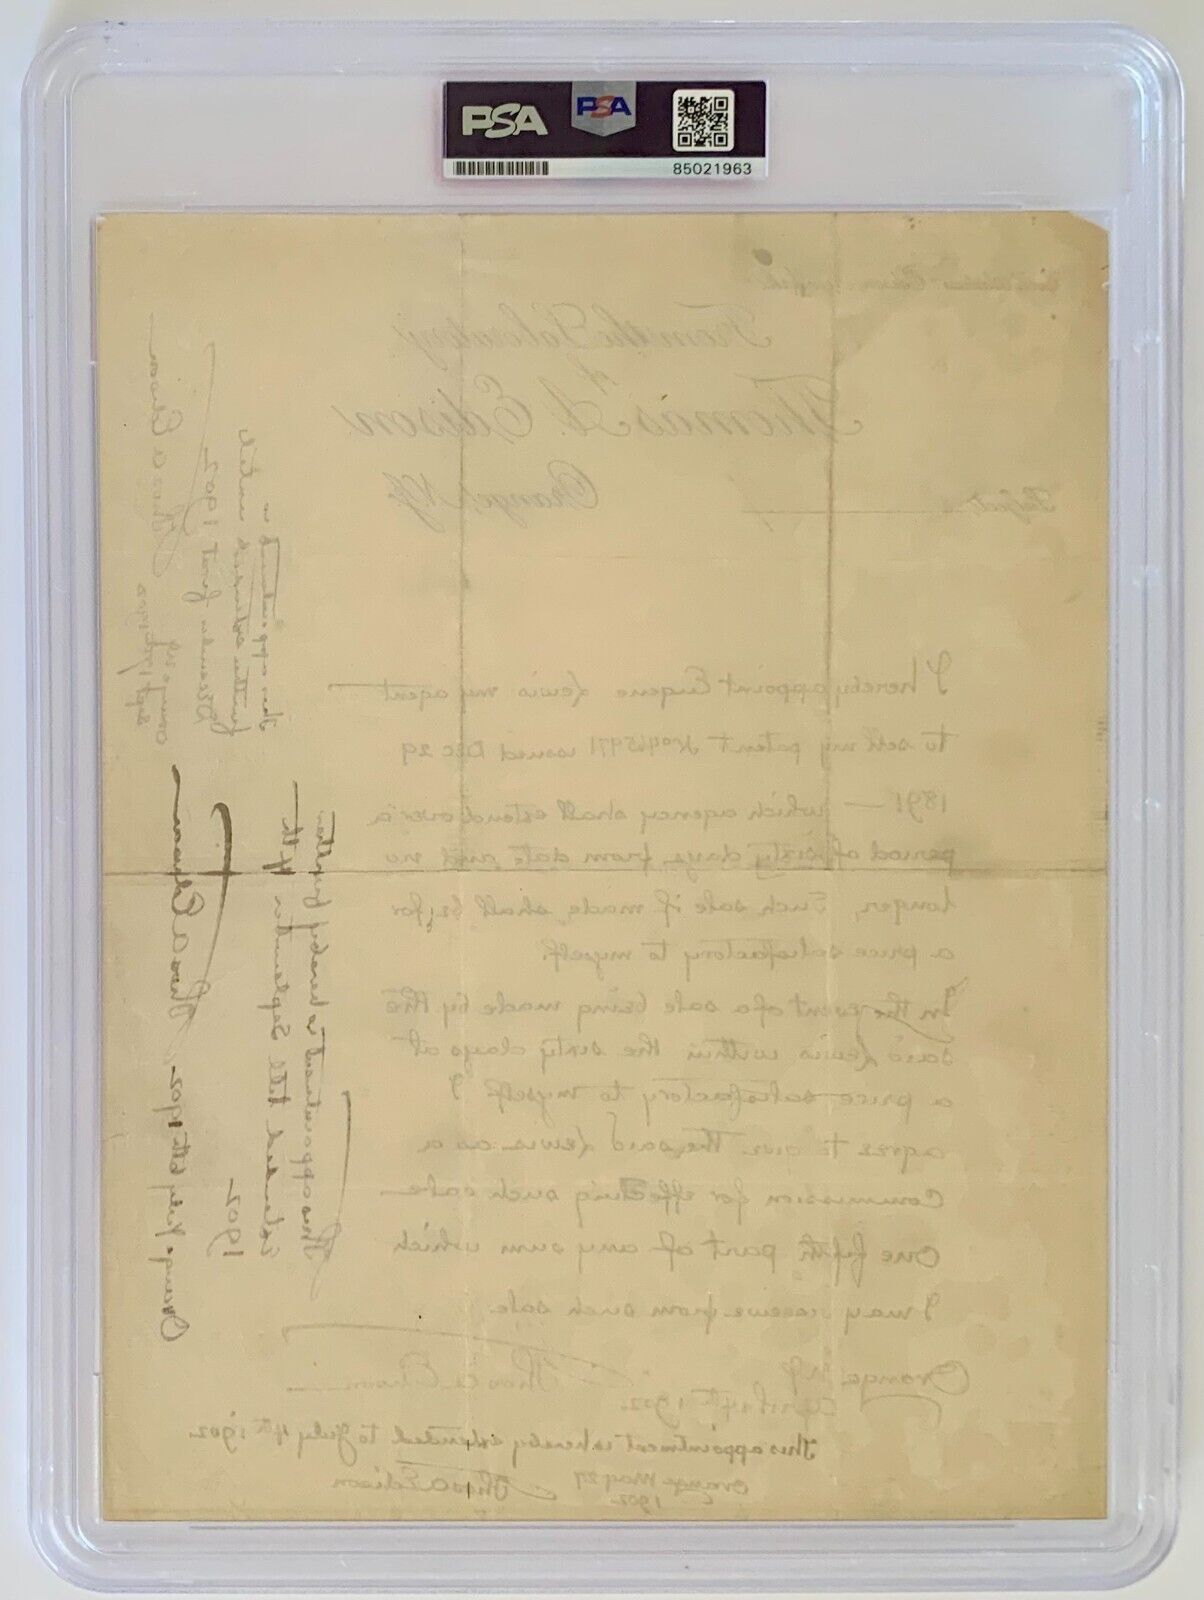 PSA
PSA
85021963
From the Laboratory
of
Thomas A. Edison
Orange, N.J.
Subject
I hereby appoint Eugene Lewis my agent
to sell my patent No 465971 issued Dec 29
1891 — which agency shall extend over a
period of sixty days from date and no
longer, such sale if made shall be for
a price satisfactory to myself.
In the event of a sale being made by the
said Lewis within the sixty days at
a price satisfactory to myself I
agree to give the said Lewis as a
Commission for effecting such sale
one fifth part of any sum which
I may receive from such sale.
Orange NJ
April 14th 1902
Thos A Edison
This appointment is hereby extended to July 4th 1902
Orange May 29
1902
Thos A Edison
This appointment is hereby further
Extended till September 4th
1902
Orange July 8th 1902 Thos A Edison
This appointment is
further extended until
December first 1902
Orange
Thos A Edison